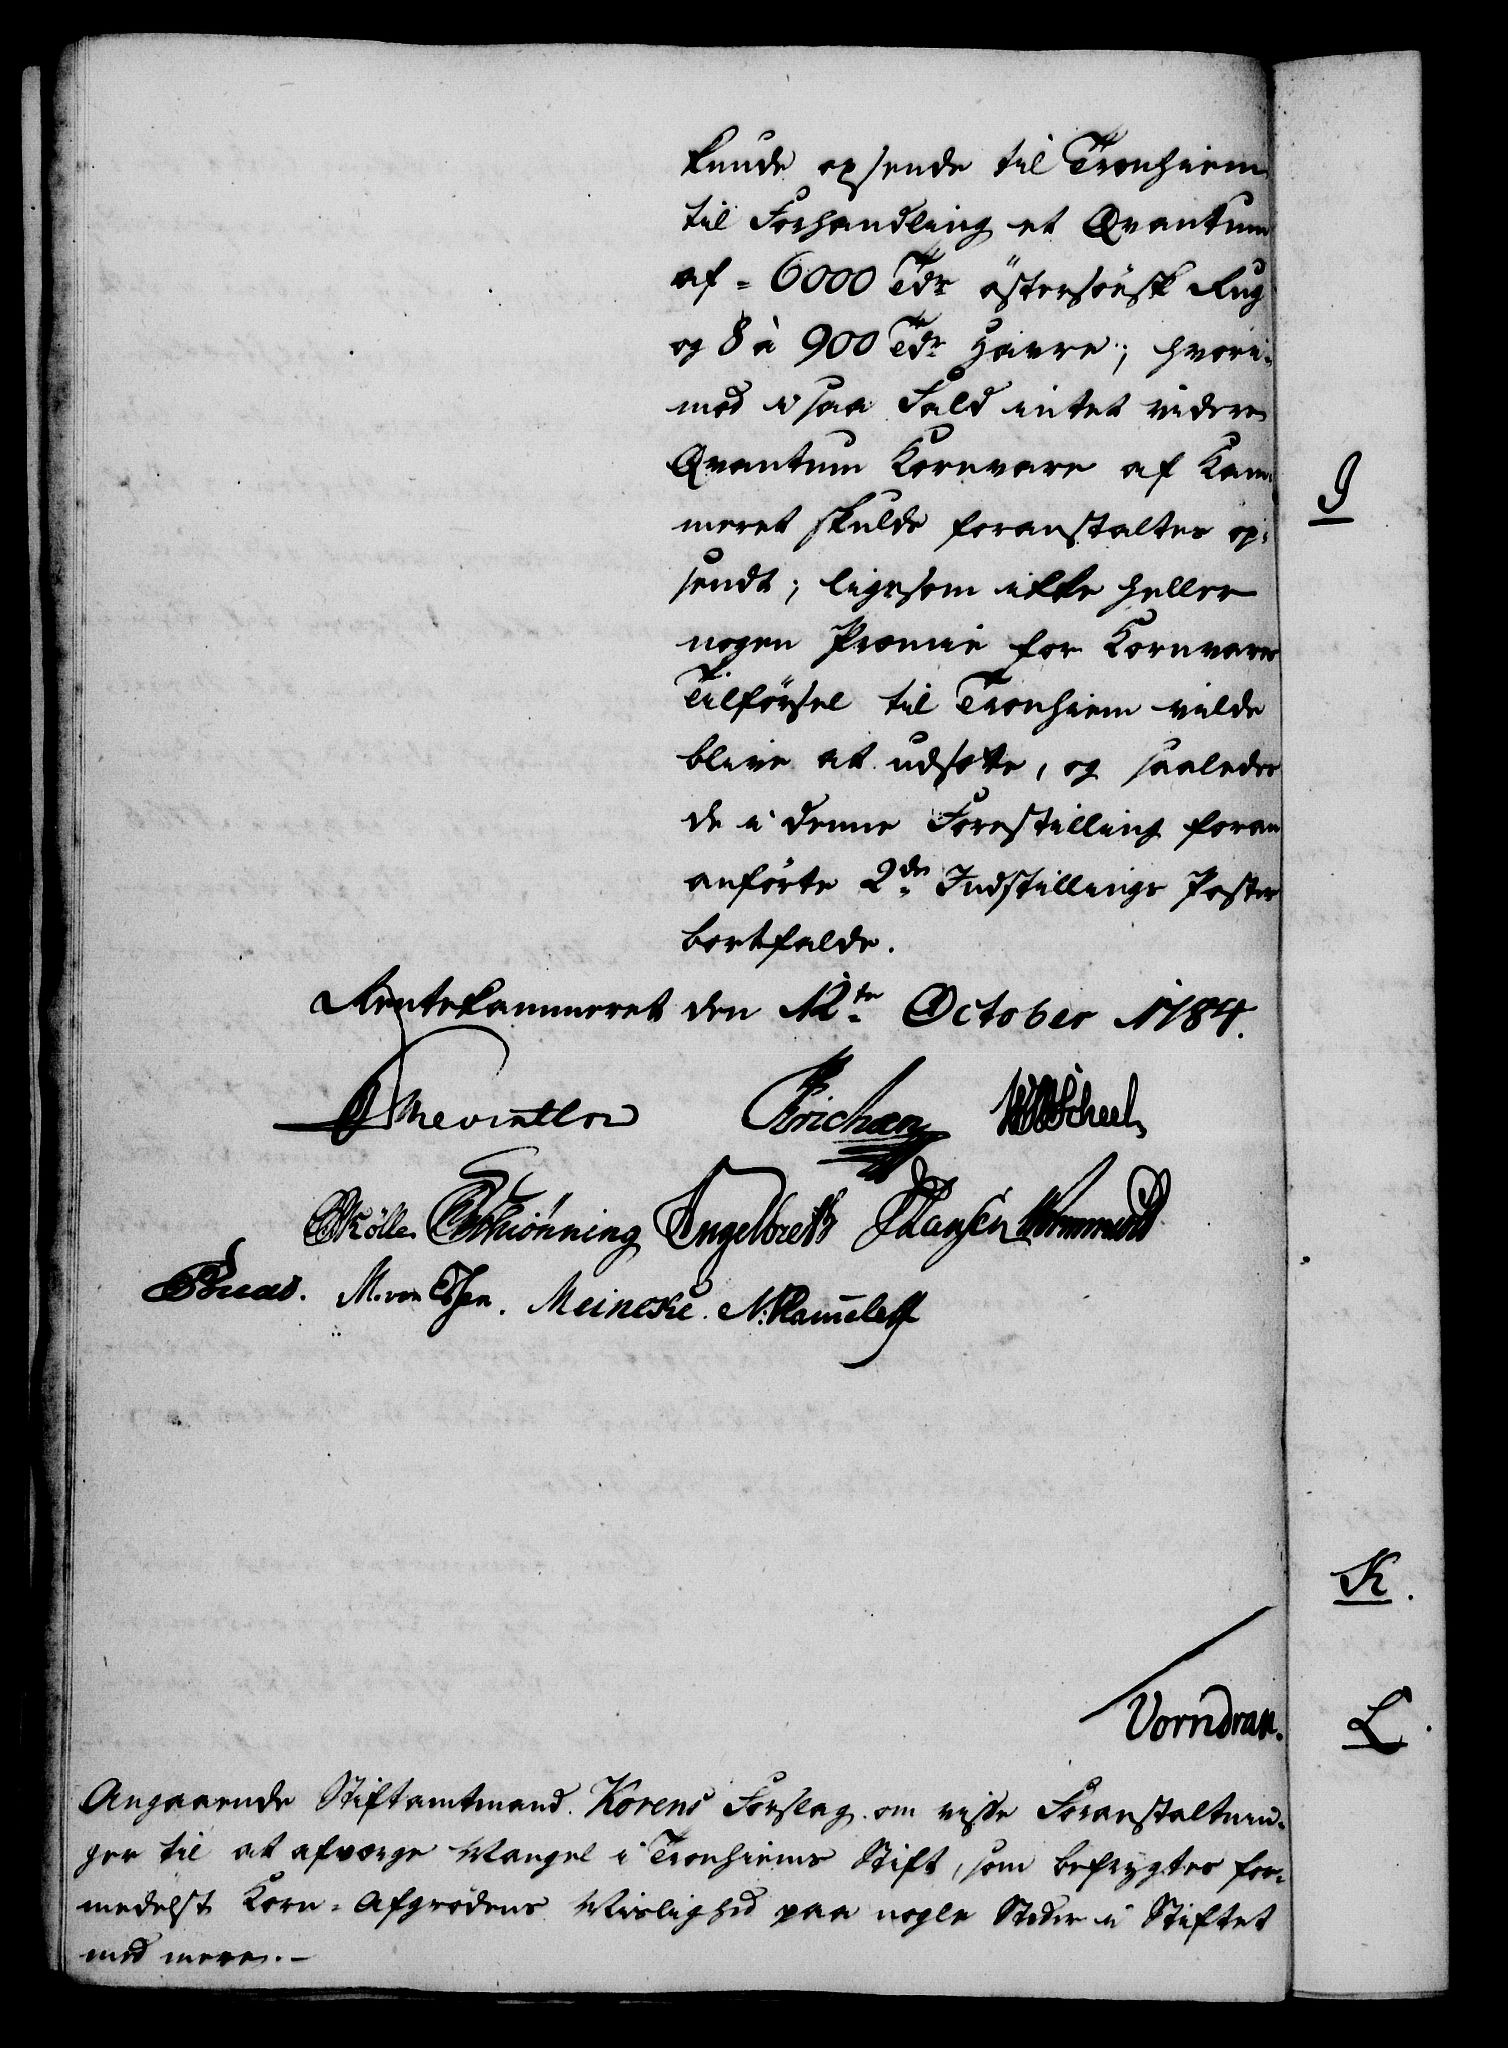 kunde opsende til Tronhiem
til Forhandling et Qvantum
af = 6000 Tdr östersöisk Rug
og 8 à 900 Tdr Havre; hvori-
mod i saa Fald intet videre
Qvantum Kornvare af Kam-
meret skulde foranstaltes op-
sendt; ligesom ikke heller
nogen Præmie for Kornvares
Tilförsel til Tronhiem vilde
blive at udsætte, og saaledes
de i denne Forestilling foran
anförte 2de Indstillings Poster
bortfalde.
Rentekammeret den 12te October 1784.
Reventlow Erichsen Scheel
Kölle Schiönning Engelbreth Hansen Wormskiold
M. von Essen. Meincke. N. Hammeleff
Vorndran.
Angaaende Stiftamtmand Korens Forslag om visse Foranstaltnin-
ger til at afværge Mangel i Tronhiems Stift, som befrygtes for-
medelst Korn-Afgrödens Mislighed paa nogle Steder i Stiftet
med mere. -
J
K.
L.